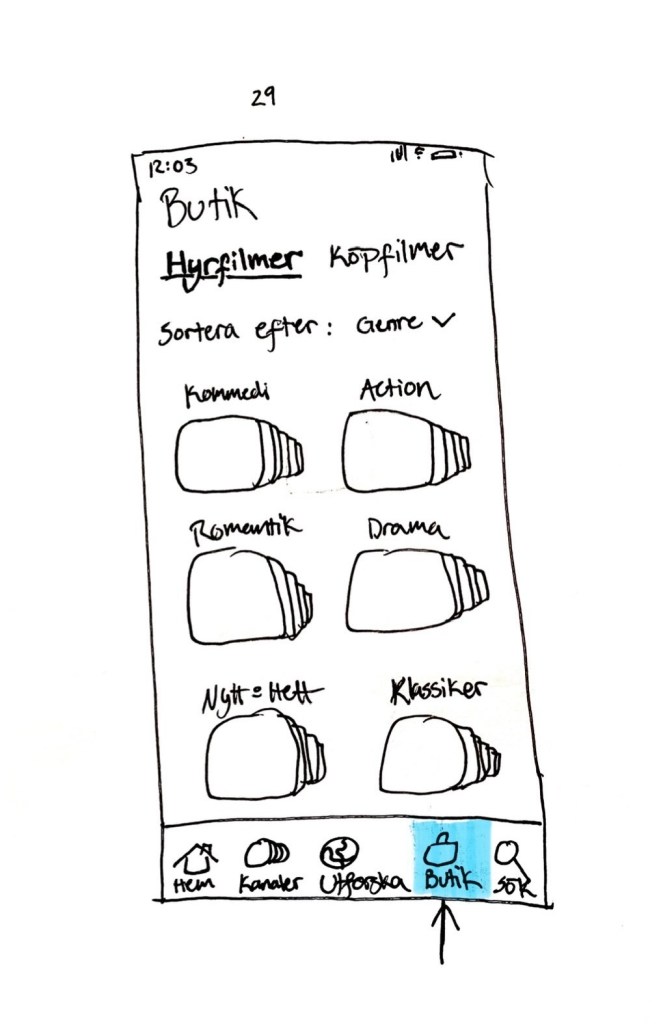 29
12:03
Butik
Hyrfilmer Köpfilmer
Sortera efter: Genre
Kommedi Action
Romantik Drama
Nytt = Hett Klassiker
Hem Kanaler Utforska Butik Sök